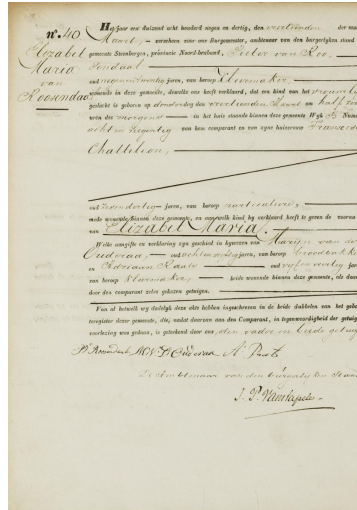 n.º 40
Elizabet
Maria
van
Roosendaal
Het jaar een duizend acht honderd negen en dertig, den veertienden der maand
Maart, – verscheen voor ons Burgemeester, ambtenaar van den burgerlijken stand
gemeente Steenbergen, provincie Noord-braband, Pieter van Roo-
sendaal
oud negenentwintig jaren, van beroep Kleermaker,
wonende in deze gemeente, dewelke ons heeft verklaard, dat een kind van het vrouwelijk
geslacht is geboren op donderdag den veertienden Maart om half
uren des morgens in het huis staande binnen deze gemeente Wyk B Num
acht en zeventig van hem comparant en van zyne huisvrouw
Chattelein,
oud jaren, van beroep particuliere,
mede wonende binnen deze gemeente, en aan welk kind hy verklaard heeft te geven de voornamen
van Elizabet Maria.
Welke aangifte en verklaring zyn geschied in bywezen van Marijn van den
Ouderaa, oud jaren, van beroep broodbakker
en Adriaan Pauts oud jaren
van beroep Kleermaker, beide wonende binnen deze gemeente, als daartoe
door den comparant zelve gekozen getuigen.
Van al hetwelk wy dadelyk deze akte hebben ingeschreven in de beide dubbelen van het geboorte
register dezer gemeente, die, nadat daarvan aan den Comparant, in tegenwoordigheid der getuigen
voorlezing was gedaan, is geteekend door ons, den vader en beide getuigen
De Ambtenaar van den burgerlijken Stand